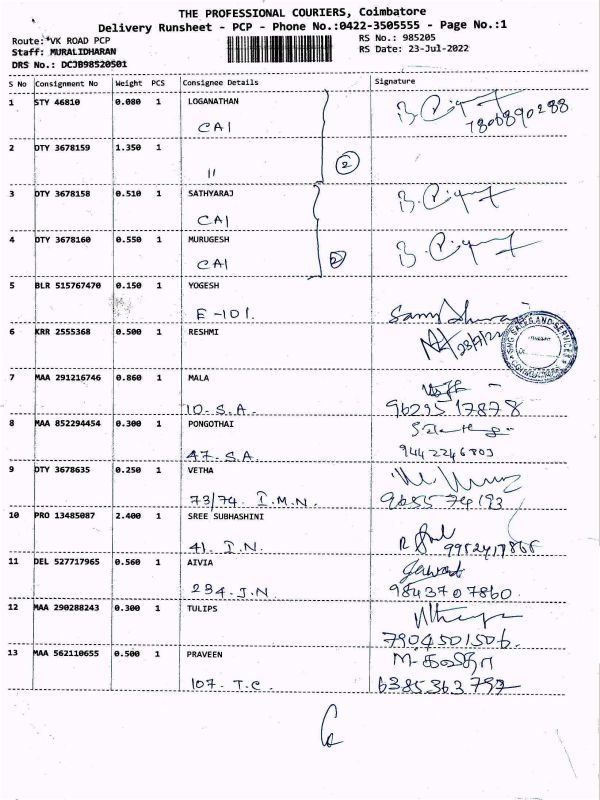 THE PROFESSIONAL COURIERS, Coimbatore
Delivery Runsheet - PCP - Phone No.:0422-3505555 - Page No.:1
Route:*VK ROAD PCP RS No.: 985205
Staff: MURALIDHARAN RS Date: 23-Jul-2022
DRS No.: DCJB98520501
S No Consignment No Weight PCS Consignee Details Signature
1 STY 46810 0.080 1 LOGANATHAN
CAI 7806890288
2 DTY 3678159 1.350 1
11 2
3 DTY 3678158 0.510 1 SATHYARAJ
CAI
4 DTY 3678160 0.550 1 MURUGESH
CAI 2
5 BLR 515767470 0.150 1 YOGESH
E-101.
6 KRR 2555368 0.500 1 RESHMI 23/7/22
7 MAA 291216746 0.860 1 MALA
10. S.A. 9629517878
8 MAA 852294454 0.300 1 PONGOTHAI
47. S.A. 9442246803
9 DTY 3678635 0.250 1 VETHA
73/74. I.M.N. 9655574193
10 PRO 13485087 2.400 1 SREE SUBHASHINI
41. I.N.
11 DEL 527717965 0.560 1 AIVIA
234. J.N 9843707860.
12 MAA 290288243 0.300 1 TULIPS
7904501506.
13 MAA 562110655 0.500 1 PRAVEEN M. கவிதா
107. T.C. 6385363797